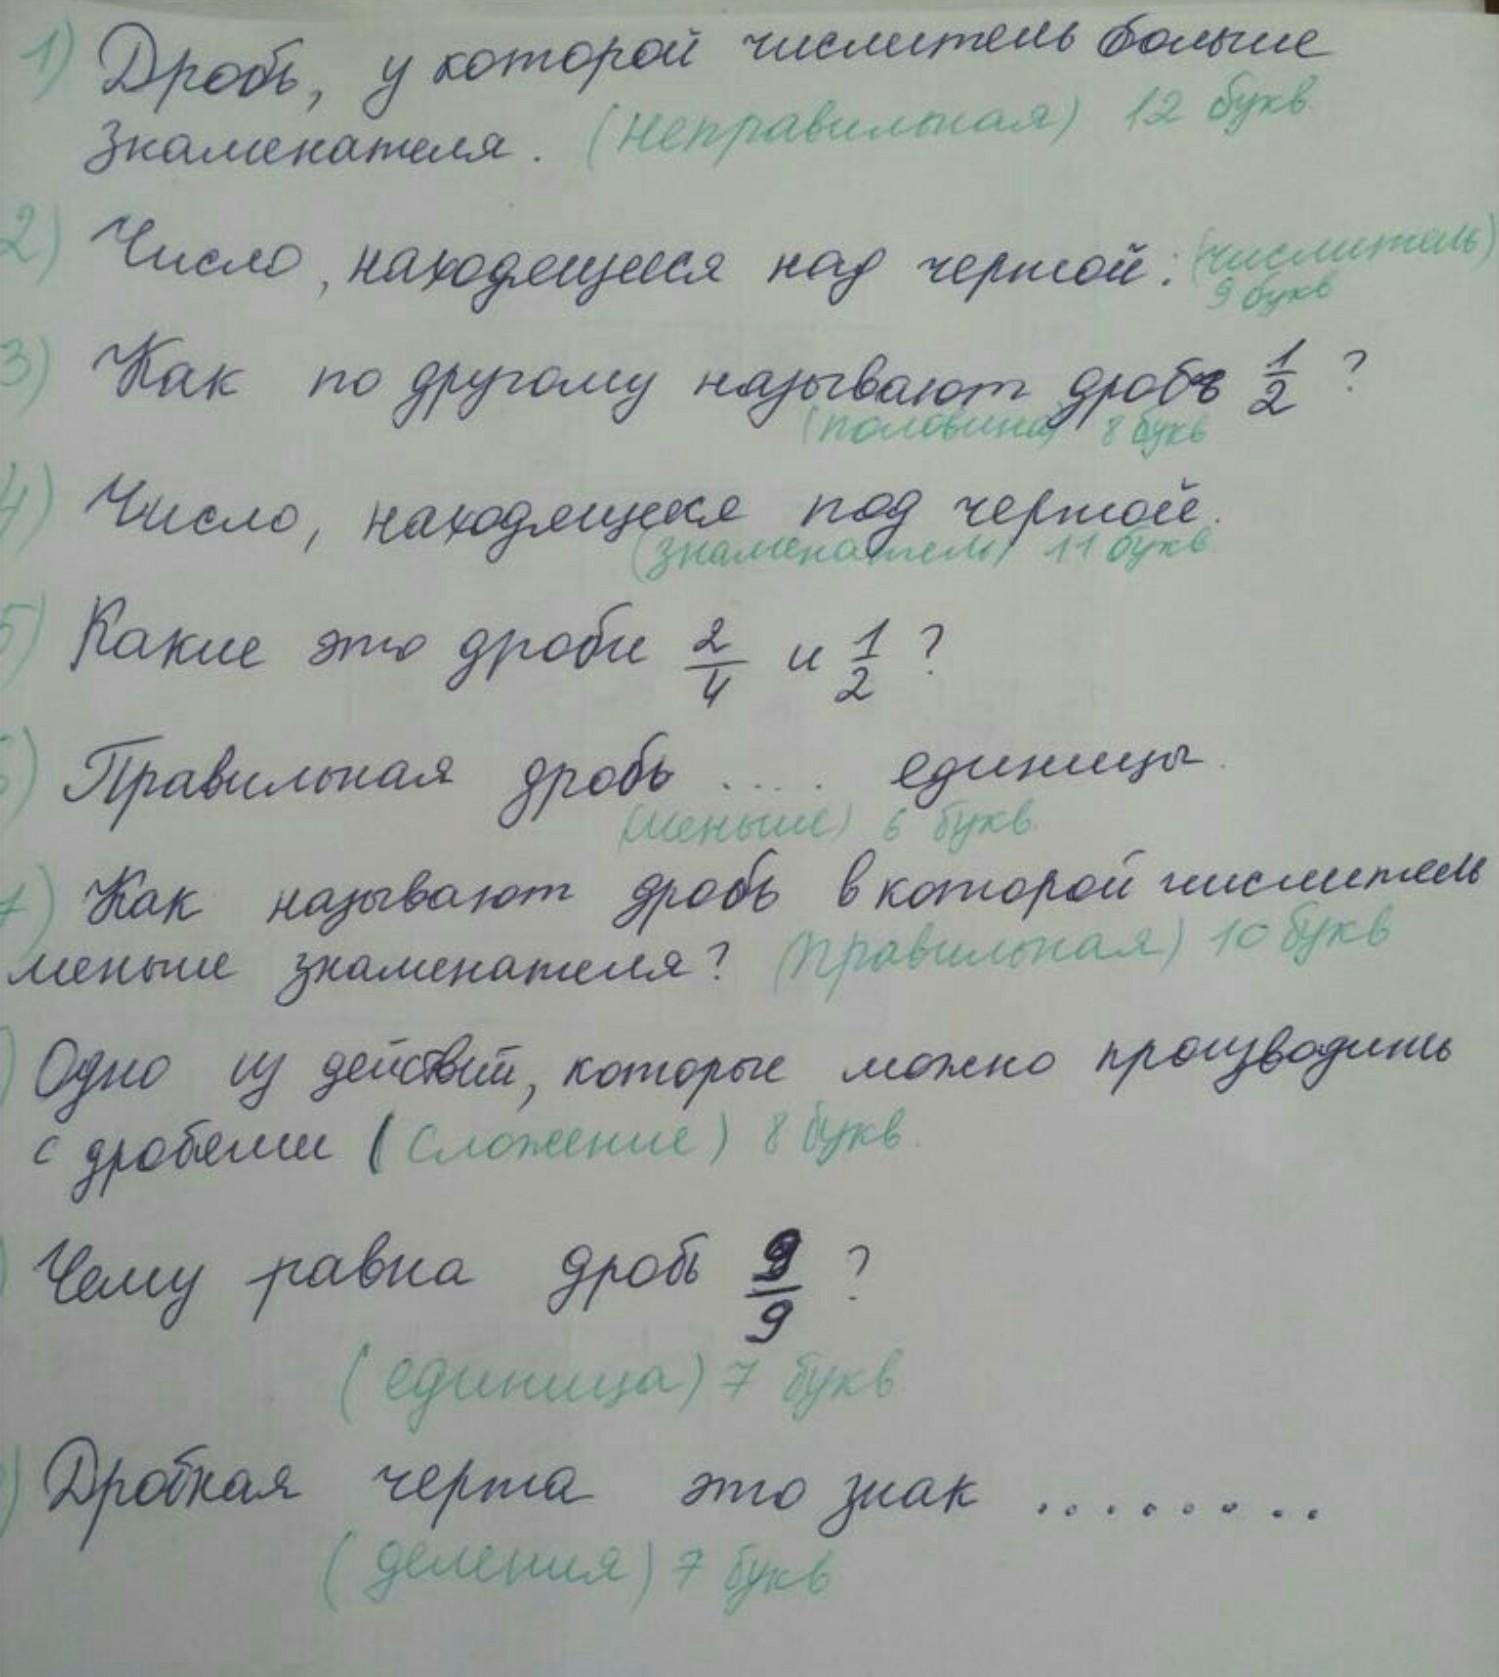 1) Дробь, у которой числитель больше
знаменателя. (неправильная) 12 букв.
2) Число, находящееся над чертой: (числитель)
9 букв
3) Как по другому называют дробь 1/2 ?
(половина) 8 букв
4) Число, находящееся под чертой.
(знаменатель) 11 букв.
5) Какие это дроби 2/4 и 1/2 ?
6) Правильная дробь .... единицы.
(меньше) 6 букв.
7) Как называют дробь в которой числитель
меньше знаменателя? (правильная) 10 букв
) Одно из действий, которые можно производить
с дробями (сложение) 8 букв.
) Чему равна дробь 9/9 ?
(единица) 7 букв
) Дробная черта это знак ........
(деления) 7 букв